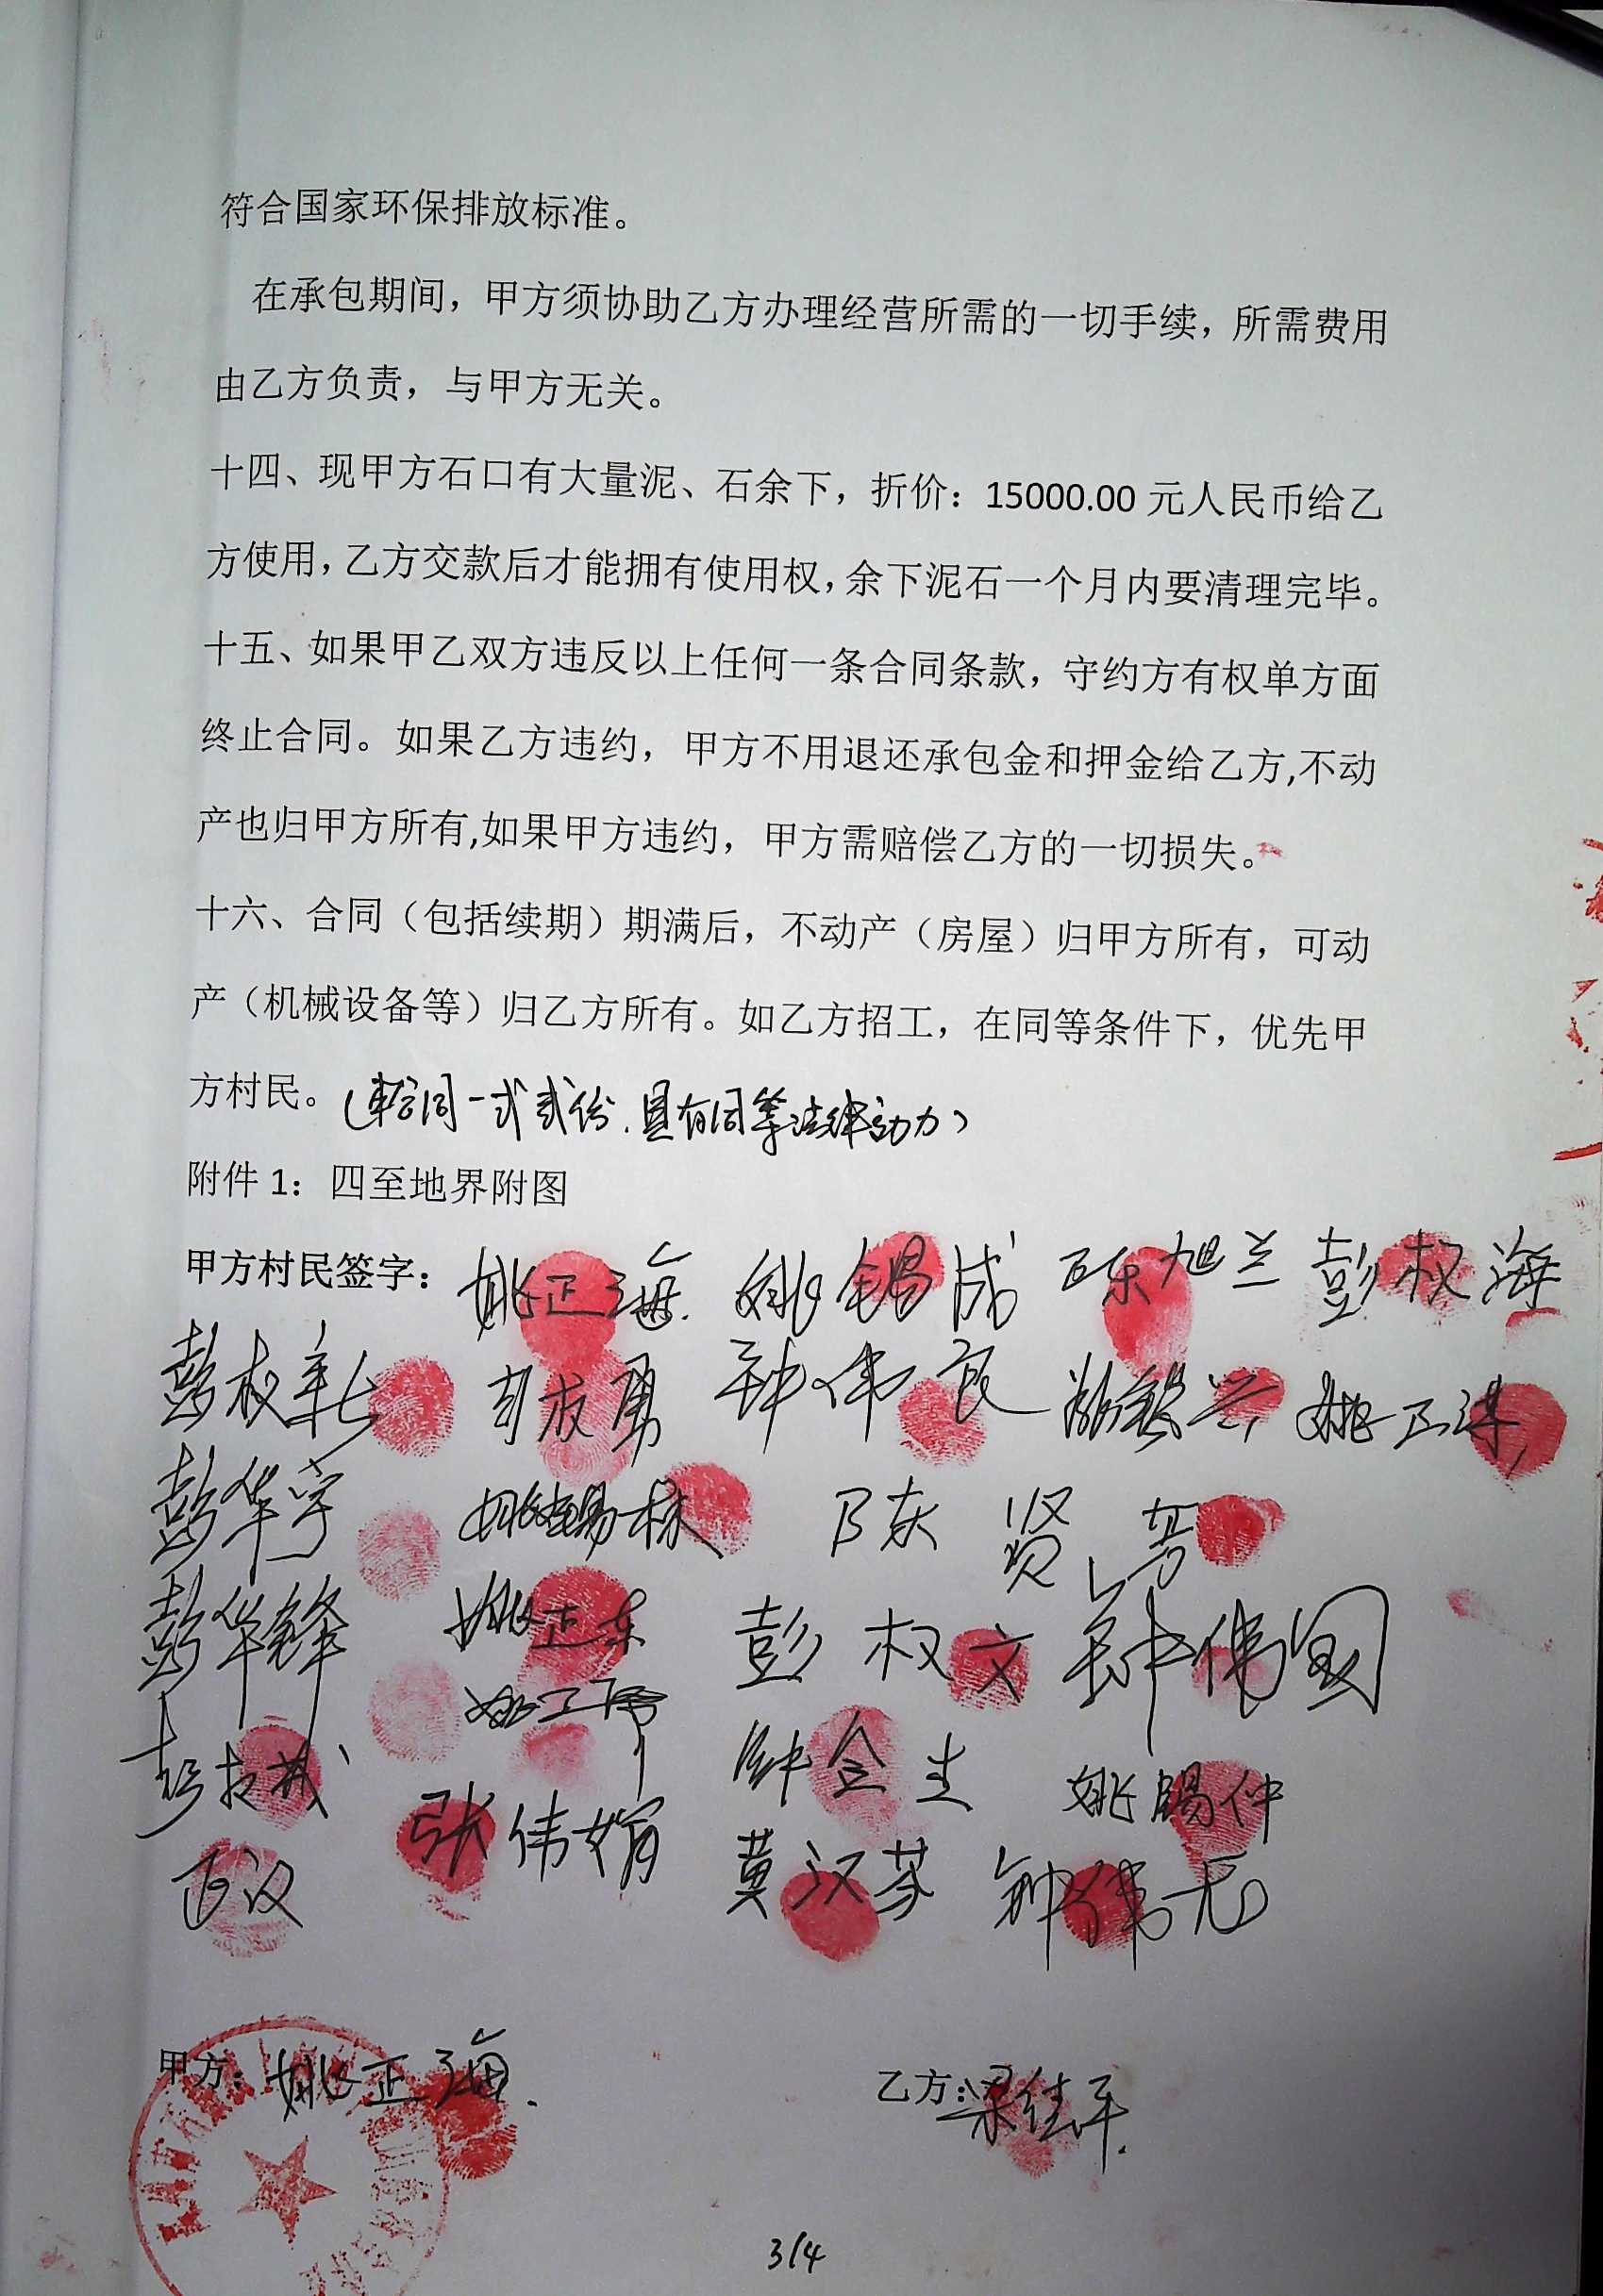 符合国家环保排放标准。
在承包期间，甲方须协助乙方办理经营所需的一切手续，所需费用
由乙方负责，与甲方无关。
十四、现甲方石口有大量泥、石余下，折价：15000.00 元人民币给乙
方使用，乙方交款后才能拥有使用权，余下泥石一个月内要清理完毕。
十五、如果甲乙双方违反以上任何一条合同条款，守约方有权单方面
终止合同。如果乙方违约，甲方不用退还承包金和押金给乙方,不动
产也归甲方所有,如果甲方违约，甲方需赔偿乙方的一切损失。
十六、合同（包括续期）期满后，不动产（房屋）归甲方所有，可动
产（机械设备等）归乙方所有。如乙方招工，在同等条件下，优先甲
方村民。（本合同一式贰份.具有同等法律效力）
附件 1：四至地界附图
甲方村民签字：姚正海. 姚锡成 陈旭兰 彭权海
彭权 钟伟良 姚正
彭华宇 姚锡林 陈贤芳
彭华锋 姚正东 彭权文 钟伟国
钟金生 姚锡仲
张伟娟 莫汉芬 钟伟
甲方：姚正海. 乙方：梁佳平.
3/4